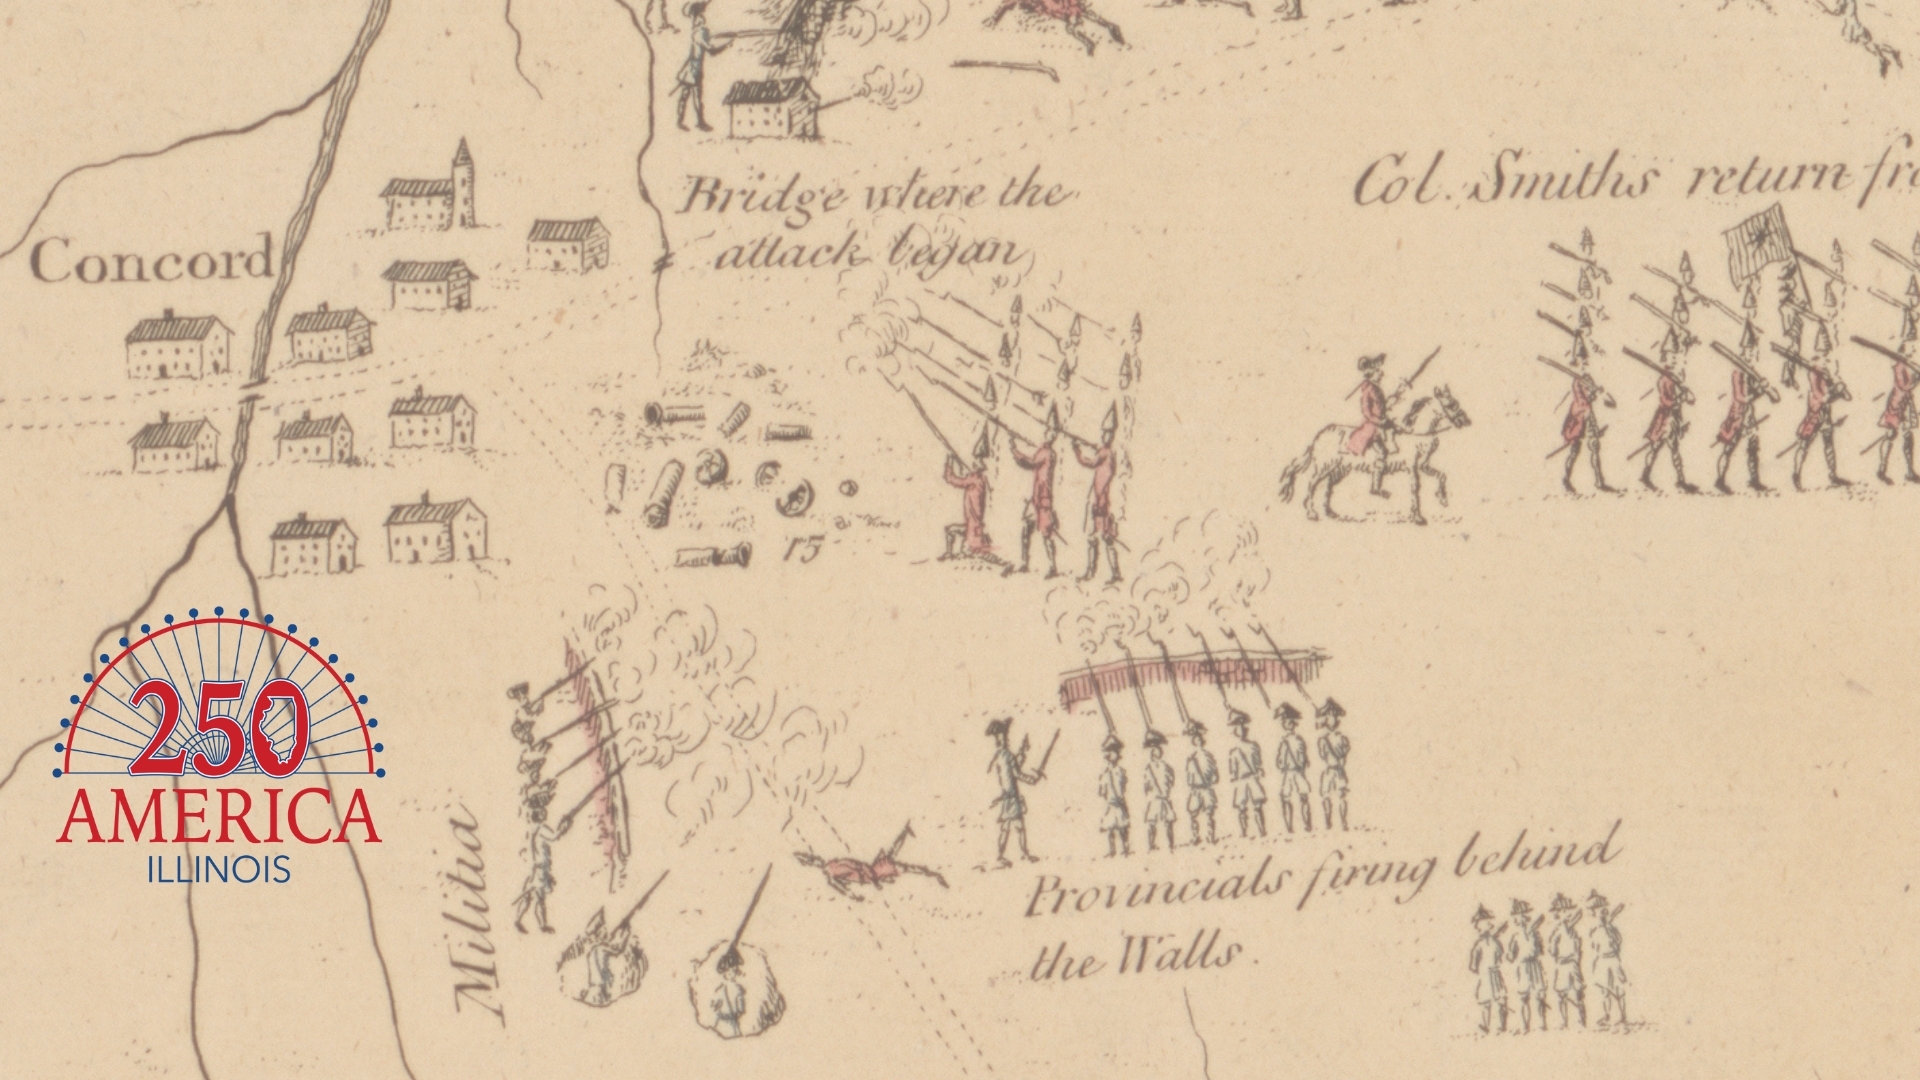 Concord
Bridge where the
attack began
Col. Smiths return
15
250
AMERICA
ILLINOIS
Militia
Provincials firing behind
the Walls.